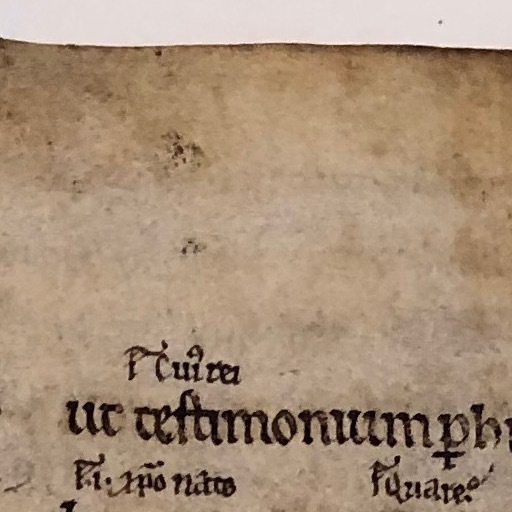 ſ Cuiꝰ rei
ut teſtimonium ꝑhi
ſ .i. xp̄o nato
ſ Quare